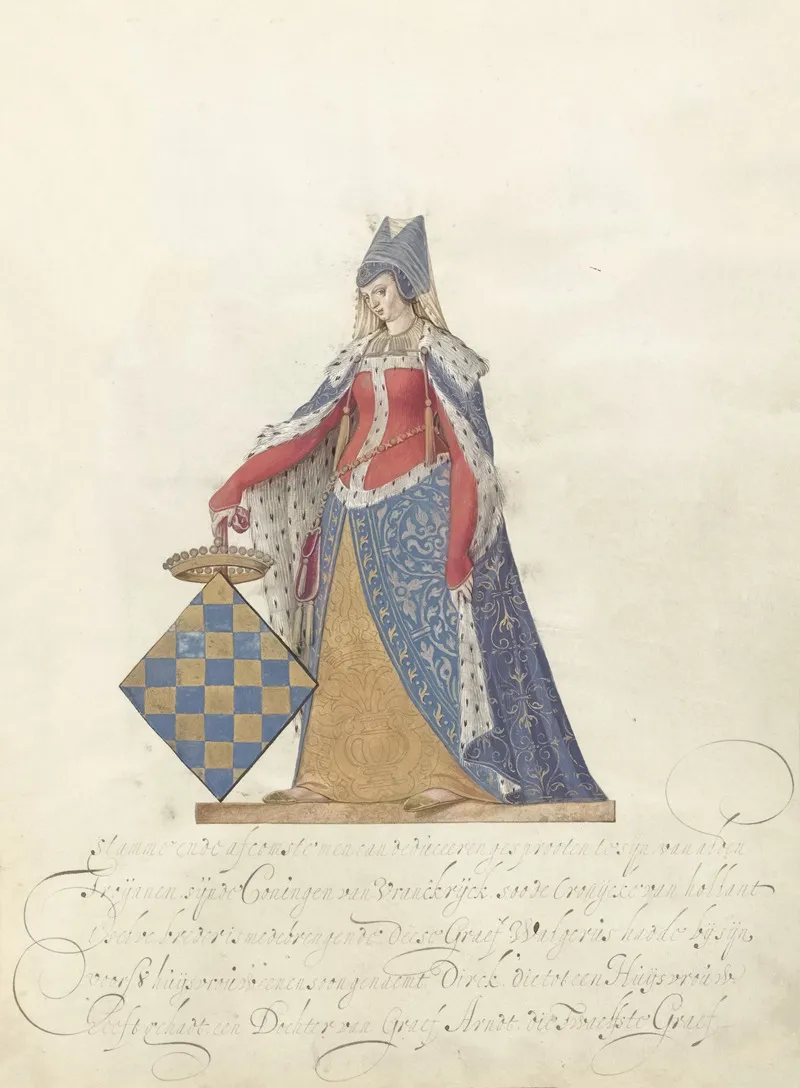 Stamme ende afcomste men can deduceeren gesprooten te sijn van alden
Troÿanen sijnde Coningen van Vranckrÿck, soo de Cronÿcke van hollant
breder is medebrengende. Dese Graef Walgerus hadde bÿ sijn
voors huijsvrouw eenen soon genaemt Dirck, die tot een Huÿsvrouw
heeft gehadt een Dochter van Graef Arndt, die Twaelfste Graef